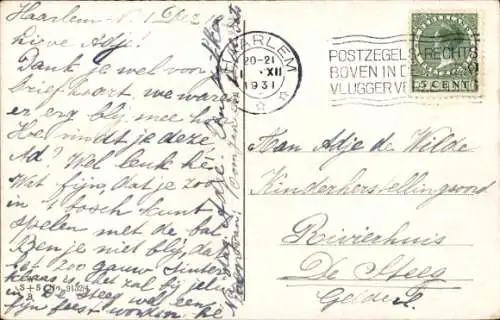 Haarlem. N. 1 Dec 31
Lieve Adje!
Dank je wel voor
briefkaart we waren
er erg blij mee hoor
Hoe vindt je deze
Ad? Wel leuk hè.
Wat fijn, dat je zoo
in 't bosch kunt
spelen met de bal
Ben je niet blij, dat
het zoo gauw Sinter
klaas is het zal bij jelui
in De Steeg wel een
fijn feest worden, hè
HAARLEM
20-21
1 XII
1931
POSTZEGELS RECHTS
BOVEN IN D
VLUGGER VE
5 CENT
Aan Adje de Wilde
Kinderherstellingsoord
Rivierhuis
De Steeg
Gelderl.
S+S
B